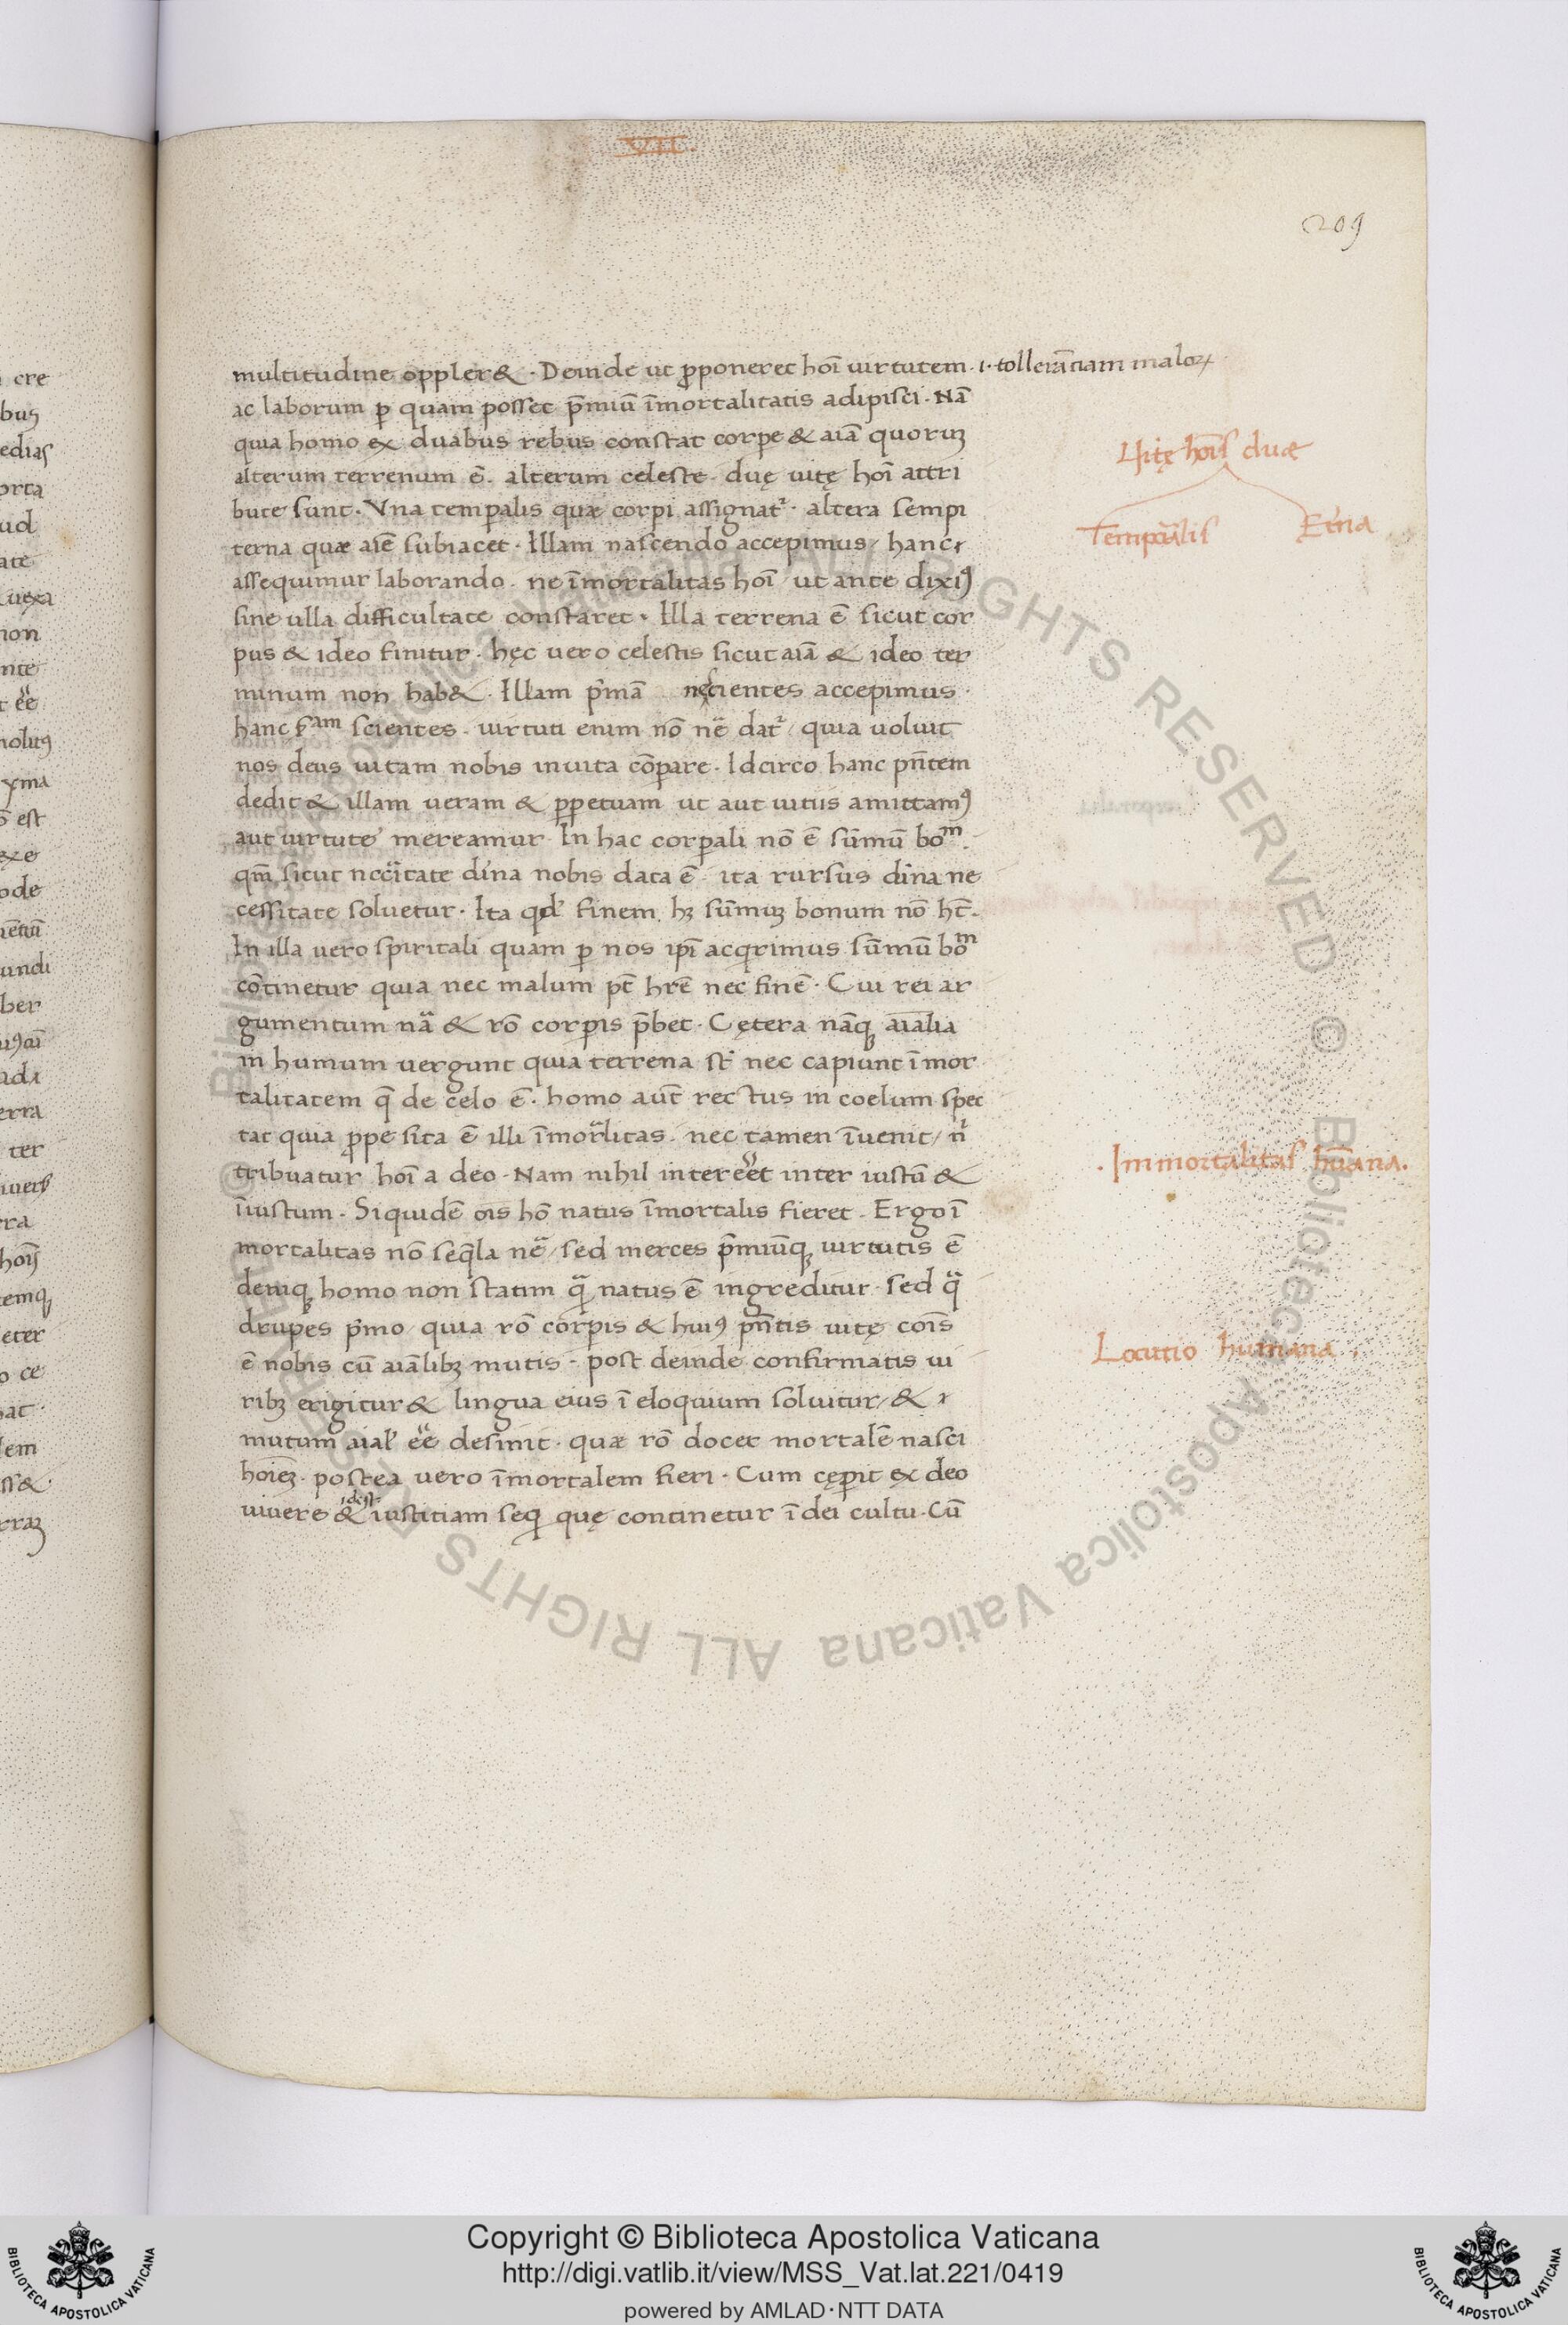 VII.
209
multitudine oppler& · Deinde ut ꝓponeret hoī uirtutem · i · tollerātiam maloꝝ
ac laborum ꝑ quam posset p̄miū īmortalitatis adipisci · Nā
quia homo ex duabus rebus constat corpe & aīa quoruꝫ
alterum terrenum ē · alterum celeste · duę uitę hoī attri
bute sunt · Vna temꝑalis quæ corpi assignat᷑ · altera sempi
terna quæ aīe subiacet · Illam nascendo accepimus / hanc
assequimur laborando · ne īmortalitas hoī / ut ante dixiꝰ
sine ulla difficultate constaret · Illa terrena ē sicut cor
pus & ideo finitur · hęc uero celestis sicut aīā & ideo ter
minum non hab& · Illam p'mā nescientes accepimus ·
hanc ẜam scientes · uirtuti enim nō nē dat᷑ / quia uoluit
nos deus uitam nobis in uita cōparare · Idcirco hanc pn̄tem
dedit & illam ueram & ꝑpetuam ut aut uitiis amittamꝰ
aut uirtute mereamur In hac corꝑali nō ē sūmū boᵐ ·
qm̄ sicut nccītate dīna nobis data ē · ita rursus dīna ne
cessitate soluetur · Ita qd' finem hꝫ sūmuꝫ bonum nō hēt ·
In illa uero spiritali quam ꝑ nos ipī acqrimus sūmū boᵐ
cōtinetur quia nec malum pt̄ hrē nec finē · Cui rei ar
gumentum nā & rō corpis p̄bet · Cętera nāqꝫ aīalia
in humum uergunt quia terrena st̄ nec capiunt īmor
talitatem q̄ de celo ē · homo aut̄ rectus in coelum spec
tat quia ꝓpesita ē illi īmor̄litas · nec tamen īuenit / n'
tribuatur hoī a deo · Nam nihil intereēt inter iustū &
īiustum · Siquidē oīs hō natus īmortalis fieret · Ergo ī
mortalitas nō seq̄la nē / sed merces p̄miūqꝫ uirtutis ē
deniqꝫ homo non statim qͣ natus ē ingreditur · sed qͣ
drupes p'mo / quia rō corpis & huiꝰ pn̄tis uitę cōis
ē nobis cū aīālibꝫ mutis · post deinde confirmatis ui
ribꝫ erigitur & lingua eius ī eloquium soluitur / &
mutum aīal' eē desinit · quæ rō docet mortalē nasci
hoīeꝫ · postea uero īmortalem fieri · Cum cęperit ex deo
uiuere & idest iustitiam seqi quę continetur ī dei cultu · Cū
Uitę hoīs duæ
Temꝑālis
Et'na
· Immortalitas hūana ·
Locutio humana ·
cre
buꝰ
edias
orta
ud
ate
uexa
non
nte
t eē
nolitꝰ
xma
ō est
exe
ode
undi
ber
adi
erra
ter
uers
rra
hoīs
temqꝫ
eter
o ce
nat ·
lem
ss& ·
rraꝫ
© Biblioteca Apostolica Vaticana ALL RIGHTS RESERVED © Biblioteca Apostolica Vaticana ALL RIGHTS RESERVED
Copyright © Biblioteca Apostolica Vaticana
http://digi.vatlib.it/view/MSS_Vat.lat.221/0419
powered by AMLAD·NTT DATA
BIBLIOTECA APOSTOLICA VATICANA
BIBLIOTECA APOSTOLICA VATICANA